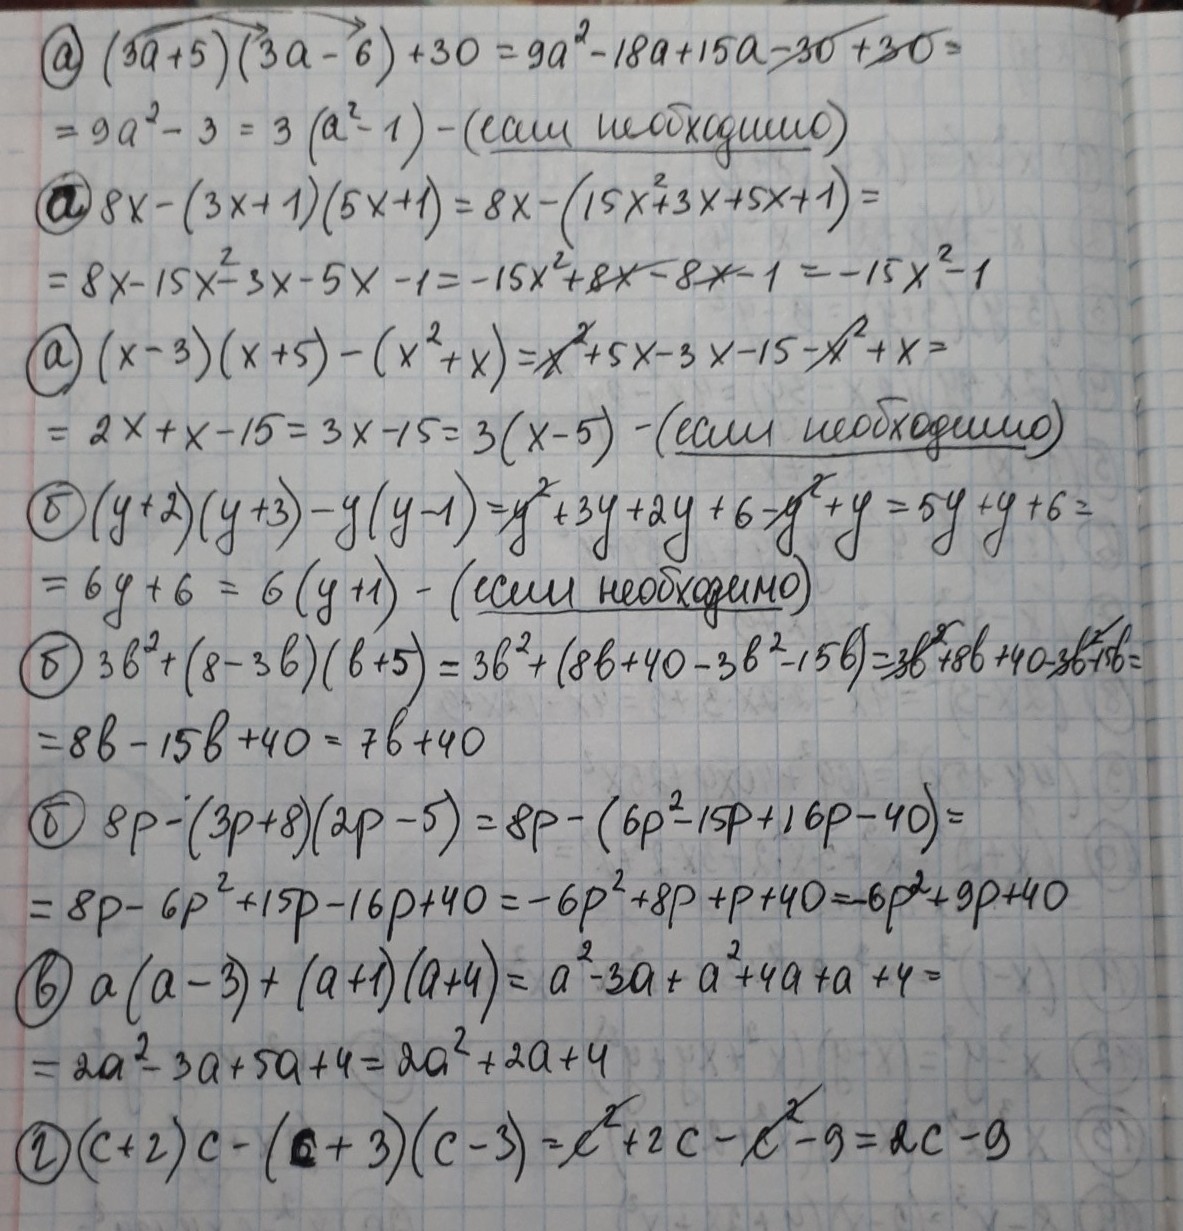 а) (3a+5)(3a-6)+30=9a²-18a+15a-30+30=
=9a²-3=3(a²-1)-(если необходимо)
а) 8x-(3x+1)(5x+1)=8x-(15x²+3x+5x+1)=
=8x-15x²-3x-5x-1=-15x²+8x-8x-1=-15x²-1
а) (x-3)(x+5)-(x²+x)=x²+5x-3x-15-x²+x=
=2x+x-15=3x-15=3(x-5)-(если необходимо)
б) (y+2)(y+3)-y(y-1)=y²+3y+2y+6-y²+y=5y+y+6=
=6y+6=6(y+1)-(если необходимо)
б) 3b²+(8-3b)(b+5)=3b²+(8b+40-3b²-15b)=3b²+8b+40-3b²-15b=
=8b-15b+40=7b+40
б) 8p-(3p+8)(2p-5)=8p-(6p²-15p+16p-40)=
=8p-6p²+15p-16p+40=-6p²+8p+p+40=-6p²+9p+40
в) a(a-3)+(a+1)(a+4)=a²-3a+a²+4a+a+4=
=2a²-3a+5a+4=2a²+2a+4
г) (c+2)c-(c+3)(c-3)=c²+2c-c²-9=2c-9